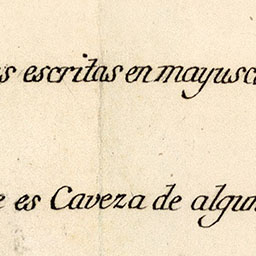 s escritas en mayusc
e es Caveza de algun